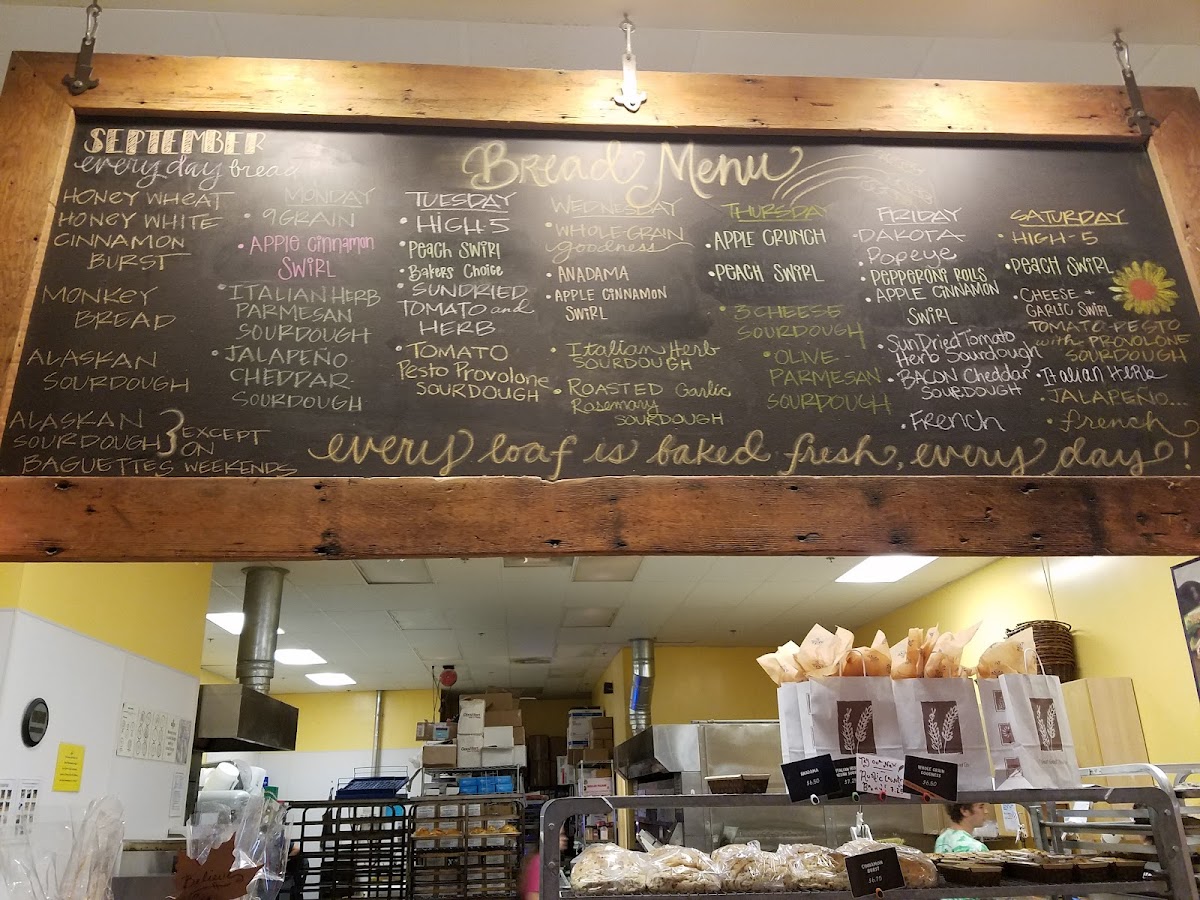 SEPTEMBER
every day bread
HONEY WHEAT
HONEY WHITE
CINNAMON
BURST
MONKEY
BREAD
ALASKAN
SOURDOUGH
ALASKAN
SOURDOUGH
BAGUETTES
EXCEPT
ON
WEEKENDS
Bread Menu
MONDAY
• 9 GRAIN
• APPLE CINNAMON
SWIRL
• ITALIAN HERB
PARMESAN
SOURDOUGH
• JALAPEÑO
CHEDDAR
SOURDOUGH
TUESDAY
• HIGH-5
• PEACH SWIRL
• BAKERS CHOICE
• SUNDRIED
TOMATO and
HERB
• TOMATO
Pesto Provolone
SOURDOUGH
WEDNESDAY
• WHOLE GRAIN
goodness
• ANADAMA
• APPLE CINNAMON
SWIRL
• Italian Herb
SOURDOUGH
• ROASTED Garlic
Rosemary
SOURDOUGH
THURSDAY
• APPLE CRUNCH
• PEACH SWIRL
• 3 CHEESE
SOURDOUGH
• OLIVE-
PARMESAN
SOURDOUGH
FRIDAY
• DAKOTA
• Popeye
• PEPPERONI ROLLS
• APPLE CINNAMON
SWIRL
• SunDried Tomato
Herb Sourdough
• BACON Cheddar
SOURDOUGH
• French
SATURDAY
• HIGH-5
• PEACH SWIRL
• CHEESE +
GARLIC SWIRL
TOMATO-PESTO
with PROVOLONE
SOURDOUGH
• Italian Herb
• JALAPEÑO...
• french
every loaf is baked fresh, every day!
ANADAMA
$6.50
WHOLE GRAIN
GOODNESS
$6.50
CINNAMON
BURST
$6.75